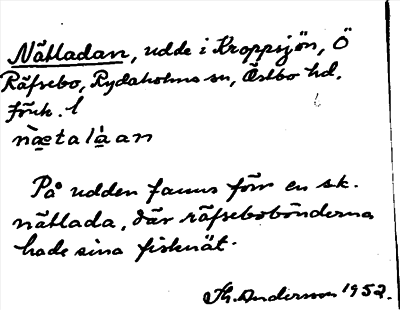 Nätladan, udde i Kroppsjön, Ö
Räfsebo, Rydaholms sn, Östbo hd.
Jönk. l
nætaláan
På udden fanns förr en sk.
nätlada, där räfsebobönderna
hade sina fisknät.
Th. Anderson 1952.